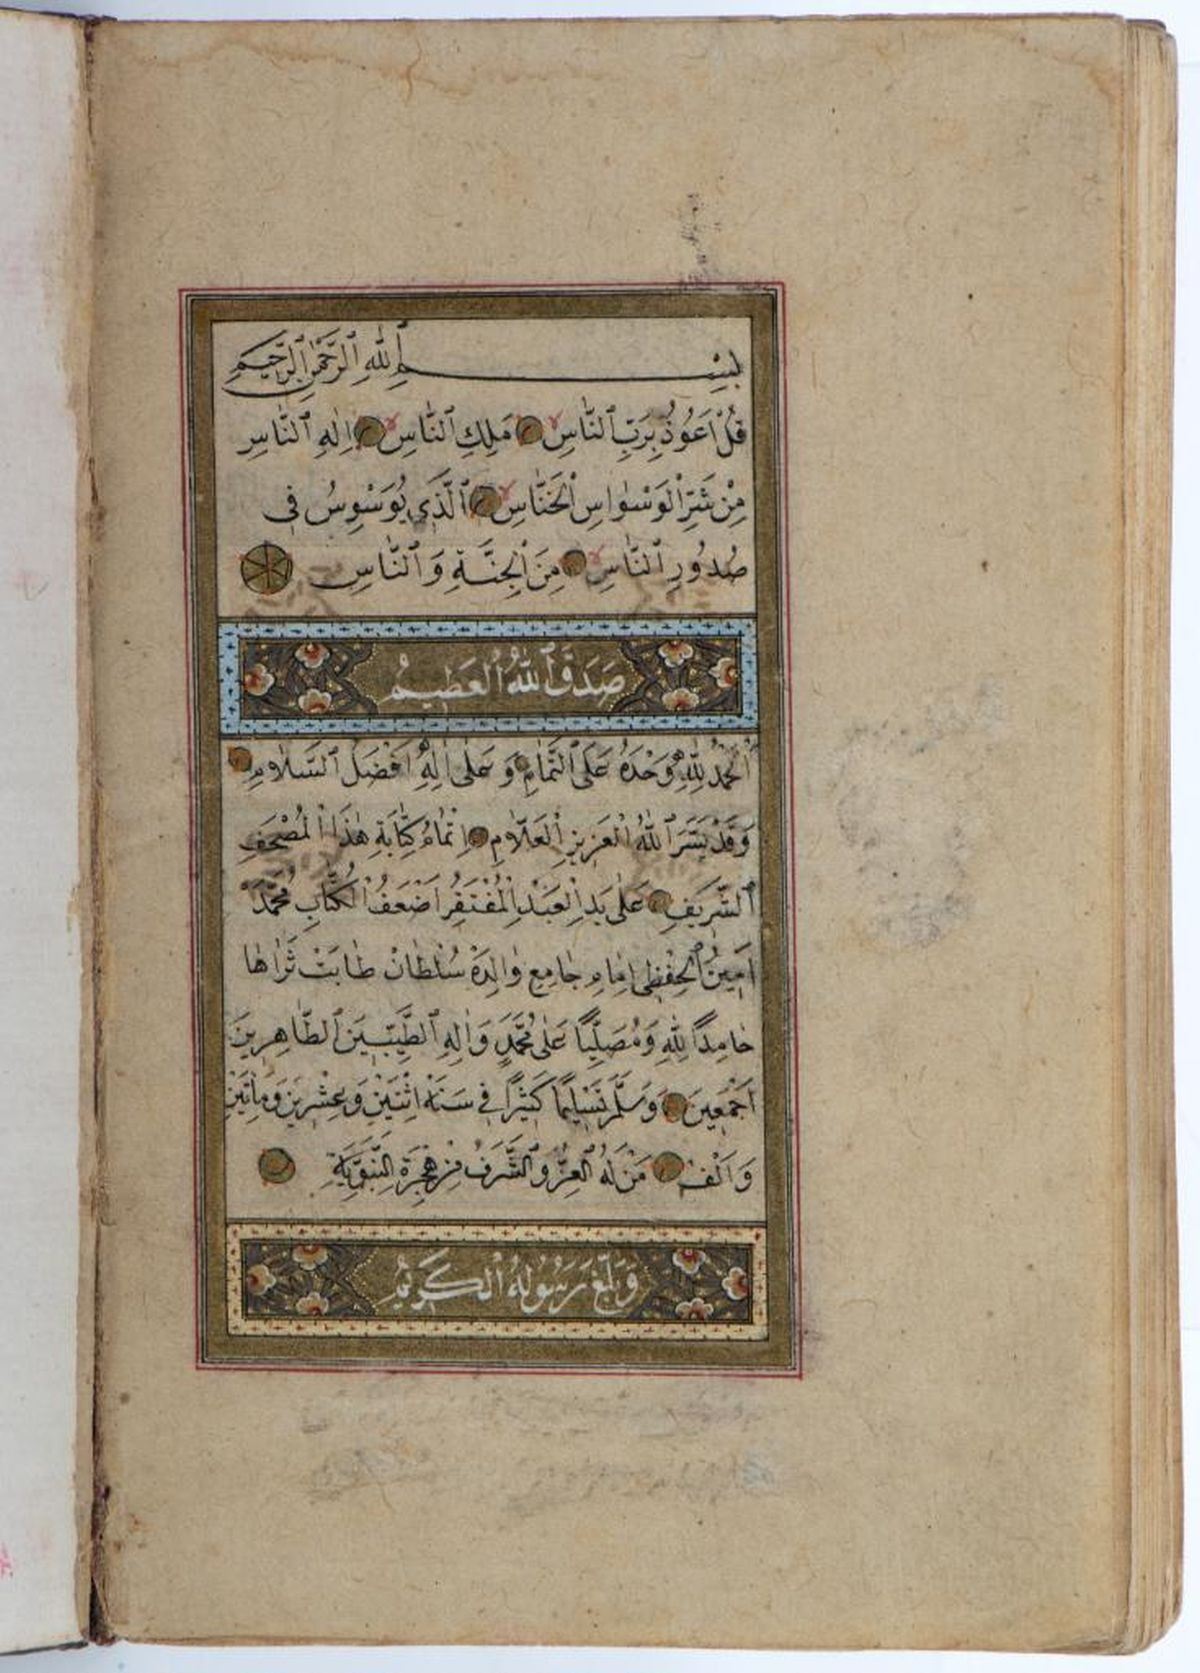 بِسْمِ ٱللّٰهِ ٱلرَّحْمٰنِ ٱلرَّحِيمِ
قُلْ اَعُوذُ بِرَبِّ ٱلنَّاسِ مَلِكِ ٱلنَّاسِ اِلٰهِ ٱلنَّاسِ
مِنْ شَرِّ ٱلْوَسْوَاسِ ٱلْخَنَّاسِ ٱلَّذِي يُوَسْوِسُ فِي
صُدُورِ ٱلنَّاسِ مِنَ ٱلْجِنَّةِ وَٱلنَّاسِ
صَدَقَ ٱللّٰهُ ٱلْعَظِيمُ
اَلْحَمْدُ لِلّٰهِ وَحْدَهُ عَلَى ٱلتَّمَامِ وَعَلٰى اٰلِهِ اَفْضَلُ ٱلسَّلَامِ
وَقَدْ يَسَّرَ ٱللّٰهُ ٱلْعَزِيزُ ٱلْعَلَّامِ اِتْمَامُ كِتَابَةِ هٰذَا ٱلْمُصْحَفِ
ٱلشَّرِيفِ عَلٰى يَدِ ٱلْعَبْدِ ٱلْمُفْتَقِرِ اَضْعَفُ ٱلْكُتَّابِ مُحَمَّدْ
اَمِينُ ٱلْحِفْظِى اِمَامِ جَامِعِ وَالِدَهْ سُلْطَانْ طَابَتْ ثَرَاهَا
حَامِدًا لِلّٰهِ وَمُصَلِّيًا عَلٰى مُحَمَّدٍ وَاٰلِهِ ٱلطَّيِّبِينَ ٱلطَّاهِرِينَ
اَجْمَعِينَ وَسَلَّمَ تَسْلِيمًا كَثِيرًا فِي سَنَةْ اِثْنَتَيْنِ وَعِشْرِينَ وَمِاتَيْنِ
وَاَلْفْ مَنْ لَهُ ٱلْعِزُّ وَٱلشَّرَفُ مِنْ هِجْرَةِ ٱلنَّبَوِيَّةِ
وَبَلَّغَ رَسُولُهُ ٱلْكَرِيمُ